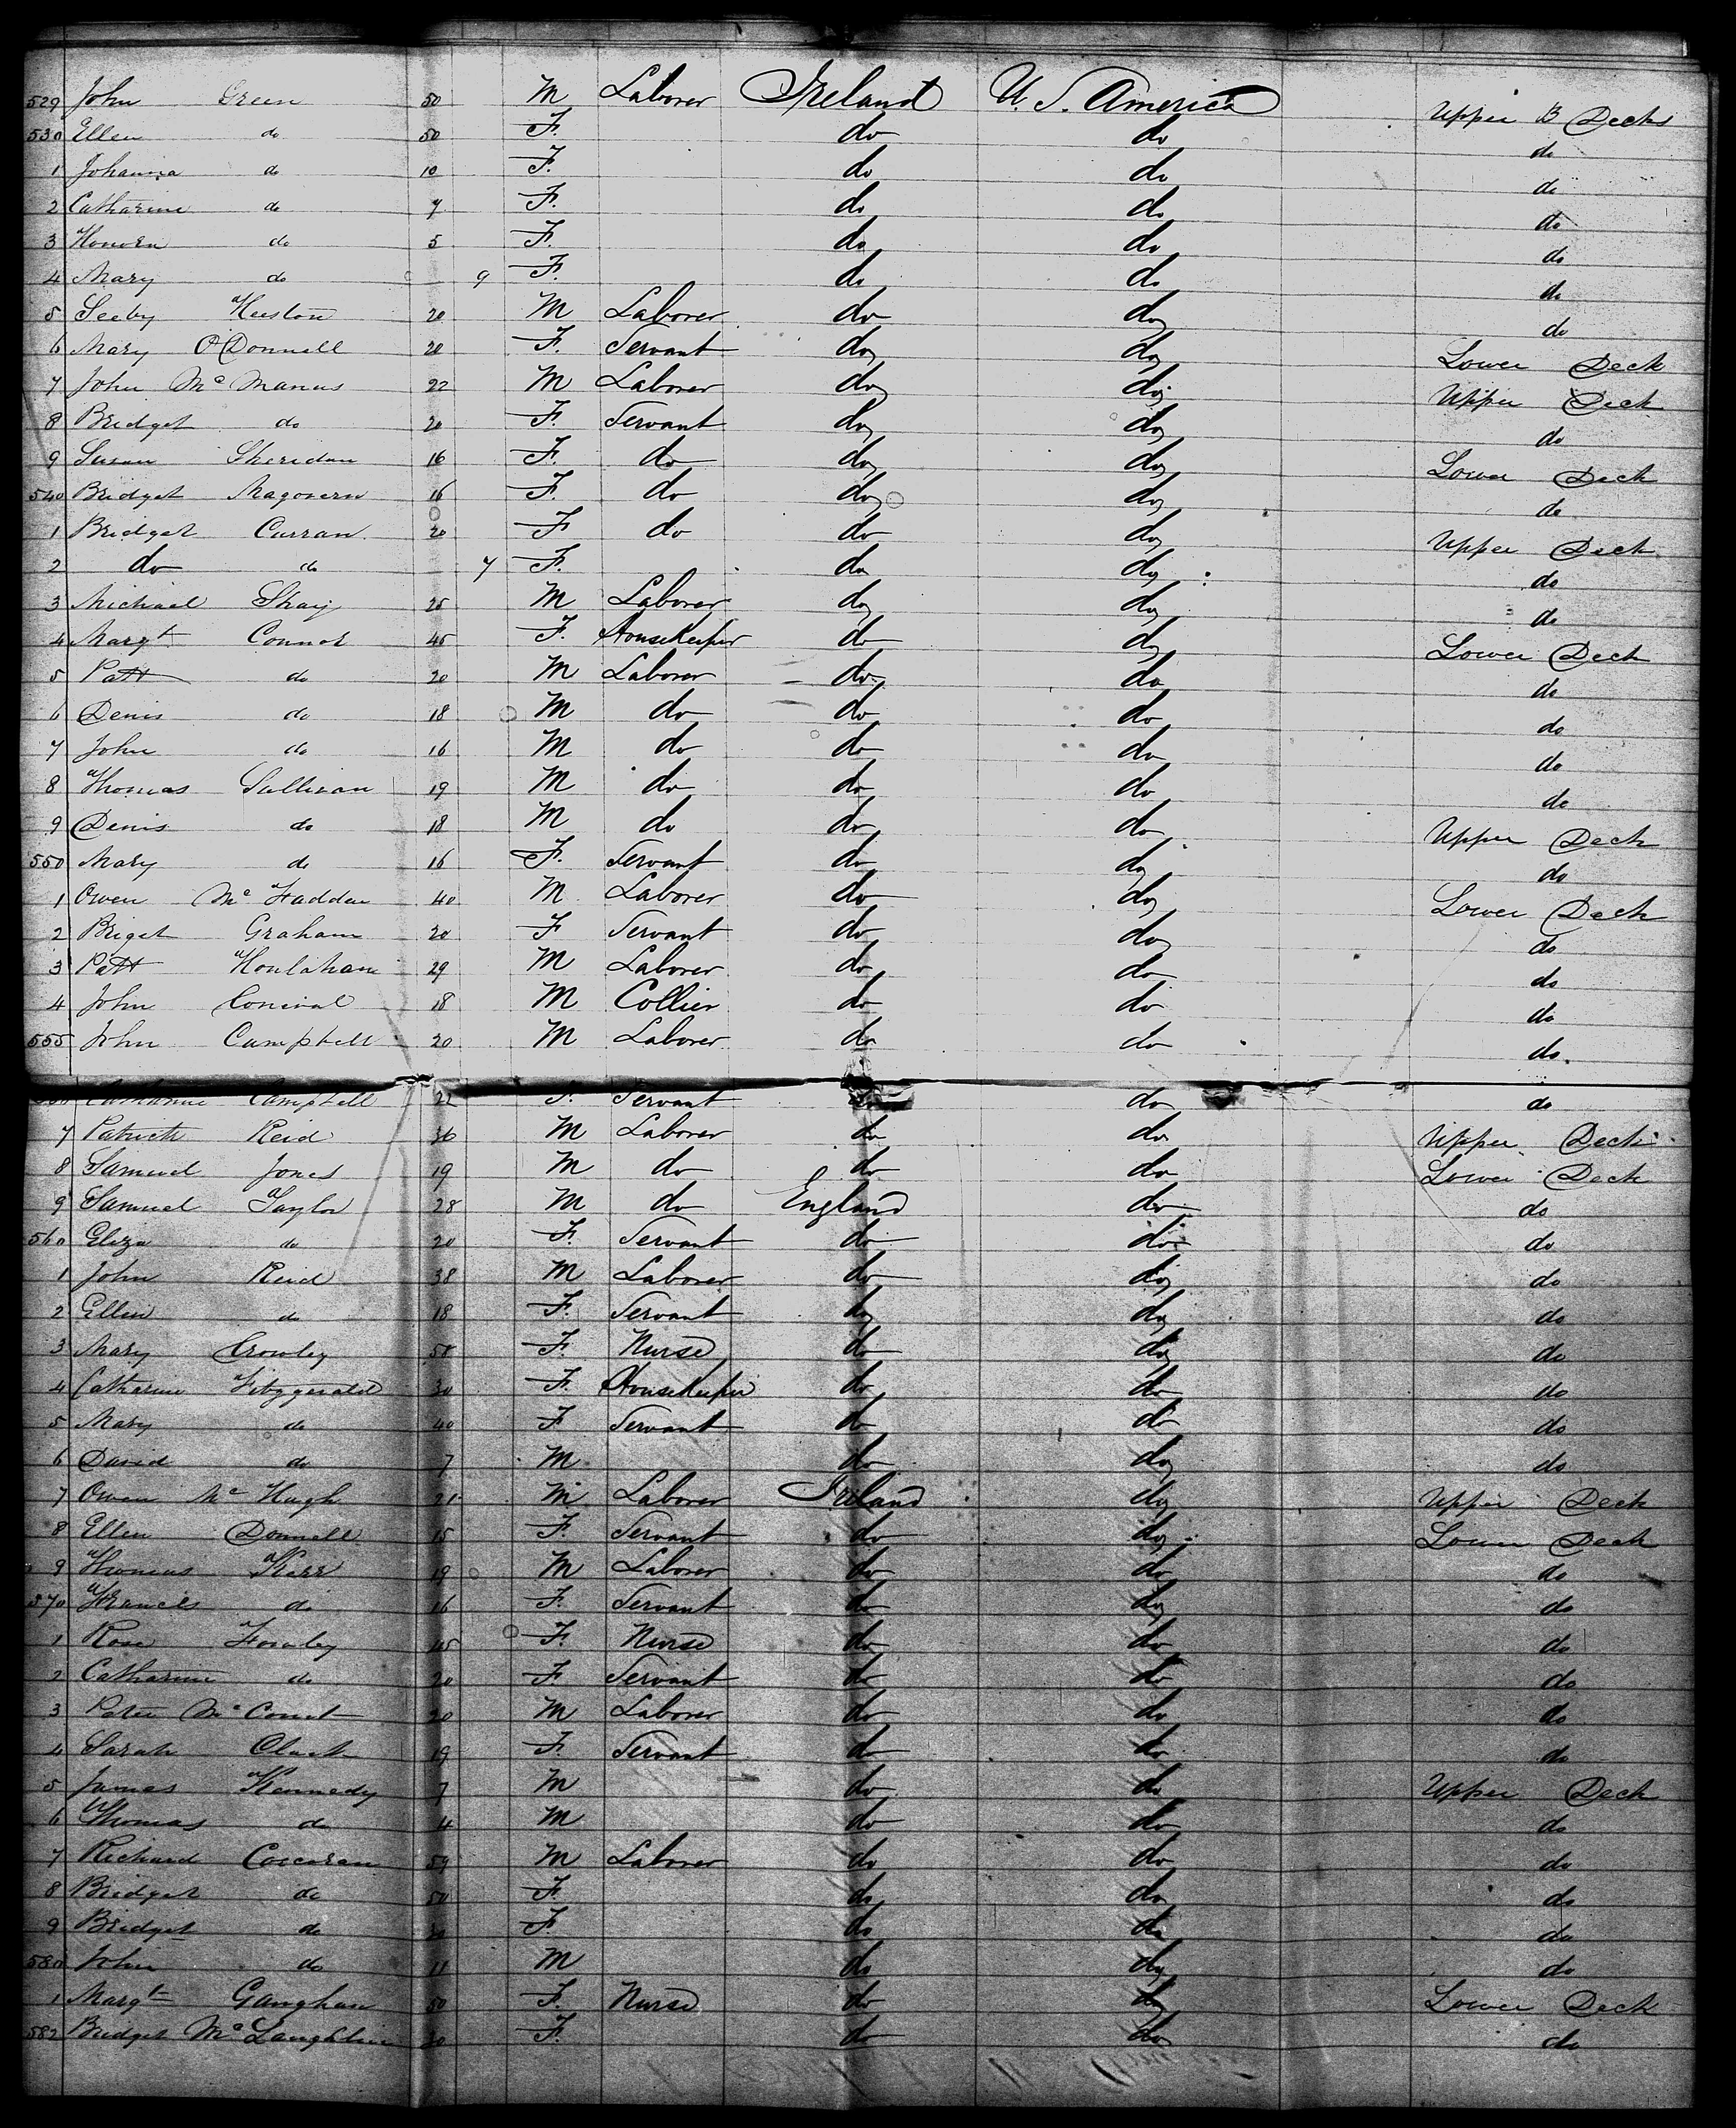 529 John Green 50 M Laborer Ireland U. S. America Upper B Decks
530 Ellen do 50 F. do do do
1 Johanna do 10 F. do do do
2 Catharine do 7 F. do do do
3 Honora do 5 F. do do do
4 Mary do 9 F. do do do
5 Heuston 20 M Laborer do do do
6 Mary O'Donnell 20 F. Servant do do Lower Deck
7 John Mc Manus 22 M Laborer do do Upper Deck
8 Bridget do 20 F. Servant do do do
9 Susan Sheridan 16 F. do do do Lower Deck
540 Bridget Magovern 16 F. do do do do
1 Bridget Curran 20 F do do do Upper Deck
2 do do 7 F. do do do
3 Michael 25 M Laborer do do do
4 Margt Connor 45 F. HouseKeeper do do Lower Deck
5 Patt do 20 M Laborer do do do
6 Denis do 18 M do do do do
7 John do 16 M do do do do
8 Thomas Sullivan 19 M do do do do
9 Denis do 18 M do do do Upper Deck
550 Mary do 16 F. Servant do do do
1 Owen Mc Fadden 40 M Laborer do do Lower Deck
2 Briget Graham 20 F Servant do do do
3 Patt Houlahan 29 M Laborer do do do
4 John 18 M Collier do do do
555 John Campbell 20 M Laborer do do do
Catharine Campbell 22 F. Servant do do do
7 Patrick Reid 36 M Laborer do do Upper Deck
8 Samuel Jones 19 M do do do Lower Deck
9 Samuel Taylor 28 M do England do do
560 Eliza do 20 F. Servant do do do
1 John Reid 38 M Laborer do do do
2 Ellen do 18 F. Servant do do do
3 Mary Crowley 58 F. Nurse do do do
4 Catharine Fitzgerald 30 F. HouseKeeper do do do
5 Mary do 40 F Servant do do do
6 David do 7 M do do do
7 Owen Mc Hugh 21 M Laborer Ireland do Upper Deck
8 Ellen Donnell 15 F. Servant do do Lower Deck
9 Thomas Kerr 19 M Laborer do do do
570 Francis do 16 F. Servant do do do
1 Rose 45 F. Nurse do do do
2 Catharine do 20 F Servant do do do
3 Peter Mc Court 20 M Laborer do do do
4 Sarah Clark 19 F. Servant do do do
5 James Kennedy 7 M do do Upper Deck
6 Thomas do 4 M do do do
7 Richard Corcoran 59 M Laborer do do do
8 Bridget do 50 F. do do do
9 Bridget do 20 F. do do do
580 John do 11 M do do do
1 Margt Gaughan 50 F. Nurse do do Lower Deck
582 Bridget Mc Laughlin 20 F. do do do